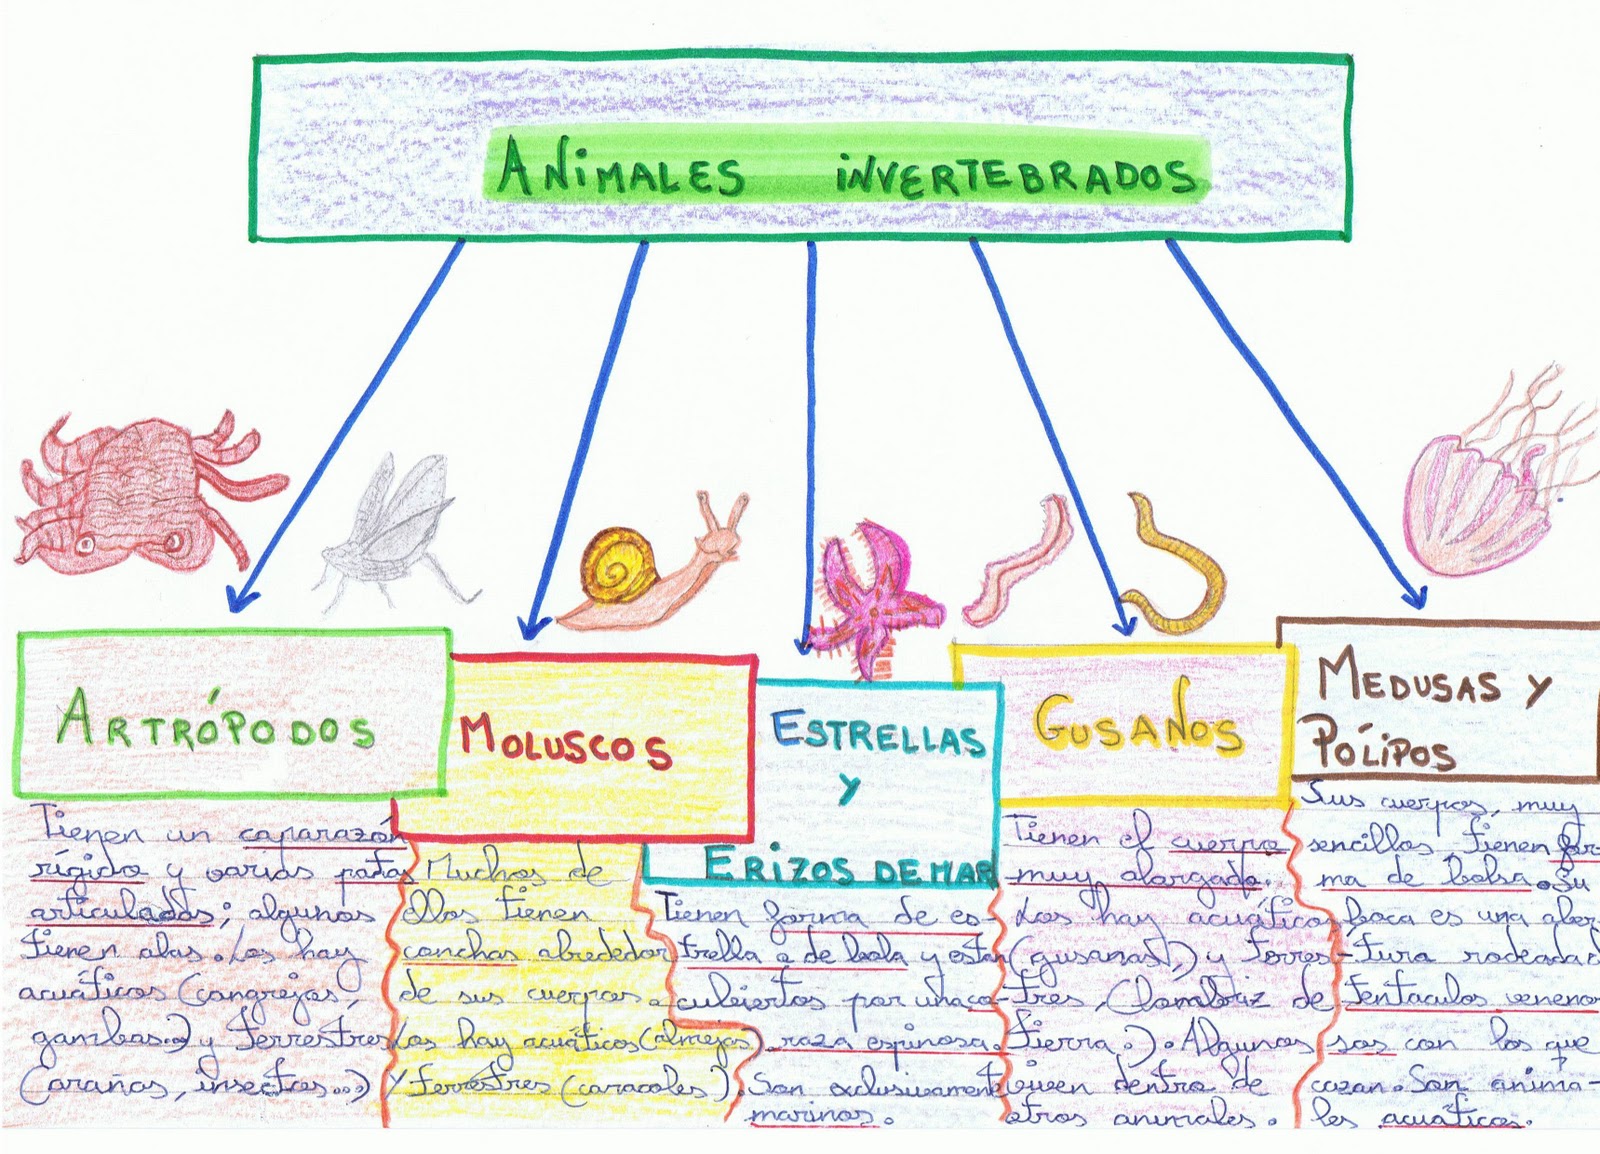 ANIMALES INVERTEBRADOS
ARTRÓPODOS
Tienen un caparazón
rígido y varias patas
articuladas; algunos
tienen alas. Los hay
acuáticos (cangrejos,
gambas...) y terrestres
(arañas, insectos...)
MOLUSCOS
Muchos de
ellos tienen
conchas alrededor
de sus cuerpos.
Los hay acuáticos (almejas)
y terrestres (caracoles).
ESTRELLAS
Y
ERIZOS DE MAR
Tienen forma de es-
trella o de bola y están
cubiertos por una co-
raza espinosa.
Son exclusivamente
marinos.
GUSANOS
Tienen el cuerpo
muy alargado.
Los hay acuáticos
(gusanas,) y terres-
tres, (lombriz de
tierra.). Algunos
viven dentro de
otros animales.
MEDUSAS Y
PÓLIPOS
Sus cuerpos, muy
sencillos tienen for-
ma de bolsa. Su
boca es una aber-
tura rodeada
tentáculos veneno-
sos con los que
cazan. Son anima-
les acuáticos.